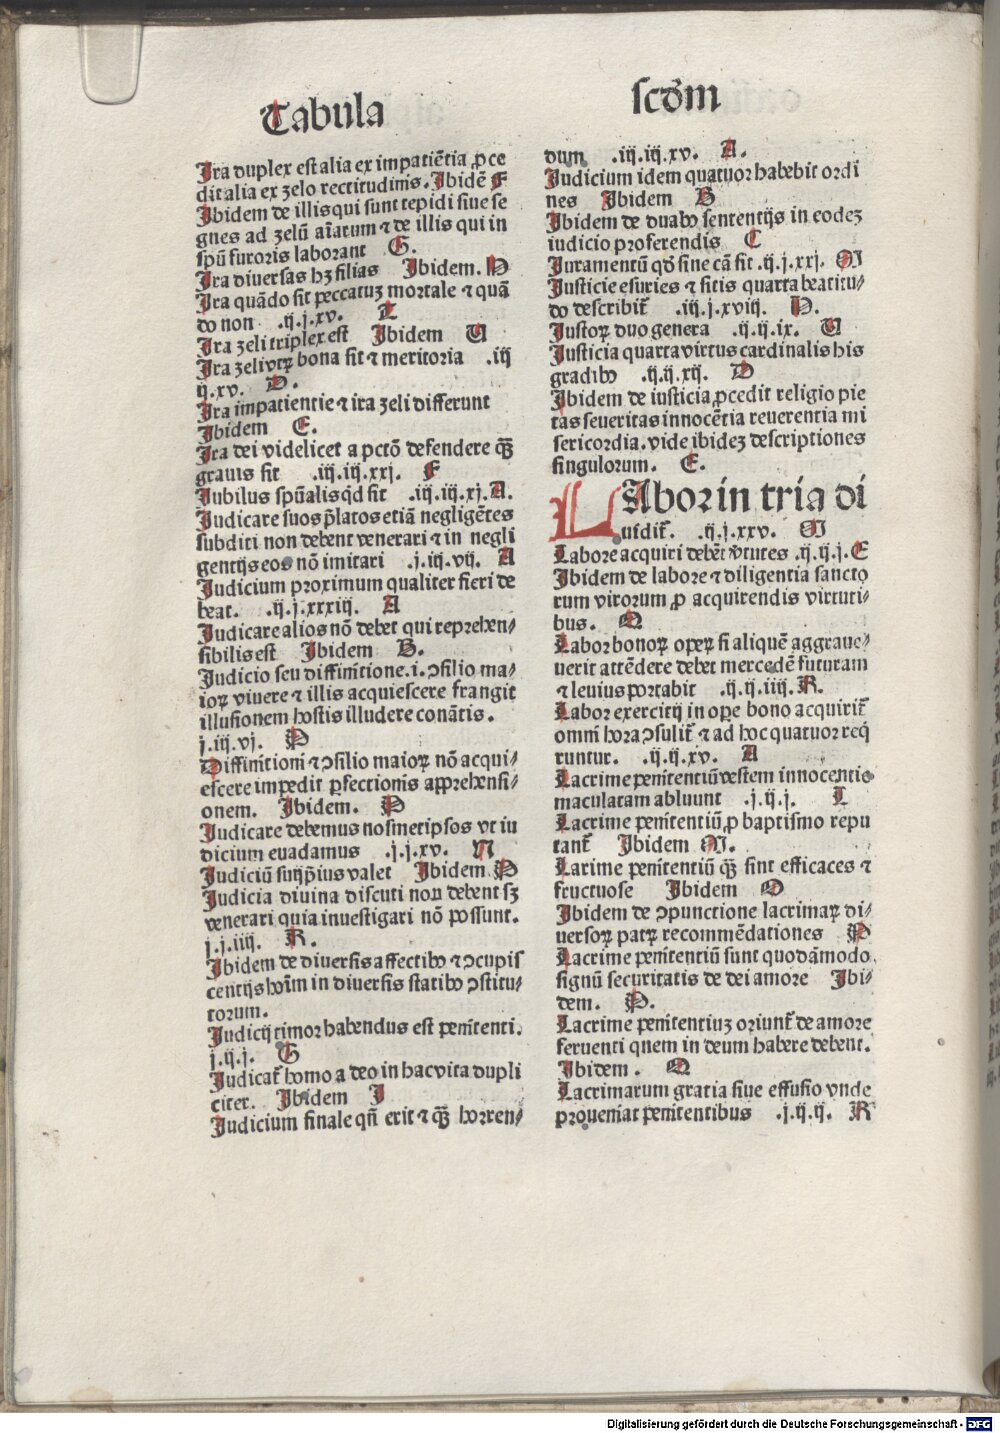 Tabula
Ira duplex est alia ex impatiẽtia ꝓce
dit alia ex zelo rectitudinis. Ibidẽ F
Ibidem de illis qui sunt tepidi siue se
gnes ad zelũ aĩarum ⁊ de illis qui in
spũ furoris laborant G.
Ira diuersas hꝫ filias Ibidem. H
Ira quãdo sit peccatuꝫ mortale ⁊ quã
do non .ij.j.xv. L
Ira zeli triplex est Ibidem U
Ira zeli vtꝝ bona sit ⁊ meritoria .iij
ij.xv. D.
Ira impatientie ⁊ ira zeli differunt
Ibidem E.
Ira dei videlicet a pctõ defendere ꝙ̃
grauis sit .iij.iij.xxj. F
Jubilus spũalis qd sit .iij.iij.xj. A.
Judicare suos p̃latos etiã negligẽtes
subditi non debent venerari ⁊ in negli
gentijs eos nõ imitari .j.iij.vij. A
Judicium proximum qualiter fieri de
beat. .ij.j.xxxiij. A
Judicare alios nõ debet qui reprehen⸗
sibilis est Ibidem B.
Judicio seu diffinitione.i. ꝯsilio ma⸗
ioꝝ viuere ⁊ illis acquiescere frangit
illusionem hostis illudere conãtis.
j.iij.vj. P
Diffinitioni ⁊ ꝯsilio maioꝝ nõ acqui⸗
escere impedit ꝑfectionis apprehensi⸗
onem. Ibidem. P
Judicare debemus nosmetipsos vt iu
dicium euadamus .j.j.xv. N
Judiciũ sui ip̃ius valet Ibidem P
Judicia diuina discuti non debent sꝫ
venerari quia inuestigari nõ possunt.
j.j.iiij. R.
Ibidem de diuersis affectibꝰ ⁊ ꝯcupis
centijs hoĩm in diuersis statibꝰ ꝯstitu⸗
torum.
Judicij timor habendus est penitenti.
j.ij.j. G
Judicat᷑ homo a deo in hac vita dupli
citer. Ibidem I
Judicium finale qñ erit ⁊ ꝙ̃ horren⸗
scd̃m
dum .iij.iij.xv. A.
Judicium idem quatuor habebit ordi
nes Ibidem B
Ibidem de duabꝰ sententijs in eodeꝫ
iudicio proferendis C
Juramentũ qd̃ sine cã fit .ij.j.xxj. M
Justicie esuries ⁊ sitis quarta beatitu⸗
do describit᷑ .iij.j.xviij. H.
Justoꝝ duo genera .ij.ij.ix. U
Justicia quarta virtus cardinalis his
gradibꝰ .ij.ij.xij. D
Ibidem de iusticia ꝓcedit religio pie
tas seueritas innocẽtia reuerentia mi
sericordia. vide ibideꝫ descriptiones
singulorum. E.
LAbor in tria di
uidit᷑. .ij.j.xxv. M
Labore acquiri debẽt ṽtutes .ij.ij.j. E
Ibidem de labore ⁊ diligentia sancto
rum virorum ꝓ acquirendis virtuti⸗
bus. Q
Labor bonoꝝ opeꝝ si aliquẽ aggraue⸗
uerit attẽdere debet mercedẽ futuram
⁊ leuius portabit .ij.ij.iiij. R.
Labor exercitij in oꝑe bono acquirit᷑
omni hora ꝯsulit᷑ ⁊ ad hoc quatuor reqͥ
runtur. .ij.ij.xv. A
Lacrime penitentiũ vestem innocentie
maculatam abluunt .j.ij.j. L
Lacrime penitentiũ ꝓ baptismo repu
tant᷑ Ibidem M.
Larime penitentiũ ꝙ̃ sint efficaces ⁊
fructuose Ibidem O
Ibidem de ꝯpunctione lacrimaꝝ di⸗
uersoꝝ patꝝ recommẽdationes P
Lacrime penitentiũ sunt quodãmodo
signũ securitatis de dei amore Ibi⸗
dem. P.
Lacrime penitentiuꝫ oriunt᷑ de amore
feruenti quem in deum habere debent.
Ibidem. Q
Lacrimarum gratia siue effusio vnde
proueniat penitentibus .j.ij.ij. R
Digitalisierung gefördert durch die Deutsche Forschungsgemeinschaft - DFG